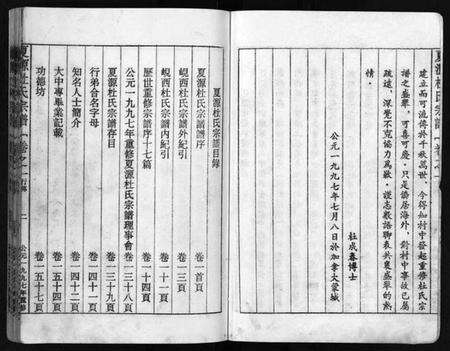 夏源杜氏宗譜 卷之一
建立而可流傳於千秋萬世、今得知村中發起重修杜氏宗
譜之盛舉、可喜可慶、只是僑居海外、對村中事故已屬
疏遠、深覺不克協力為歉、謹志數語聊表共襄盛舉的熱
情。
杜成春博士
公元一九九七年七月八日於加拿大蒙城
夏源杜氏宗譜目錄
夏源杜氏宗譜譜序 卷首頁
峴西杜氏宗譜外紀引 卷一三頁
峴西杜氏宗譜內紀引 卷一十一頁
歷世重修宗譜序十七篇 卷一十四頁
公元一九九七年重修夏源杜氏宗譜理事會 卷一三十八頁
夏源杜氏宗譜存目 卷一三十九頁
行弟合名字母 卷一四十一頁
知名人士簡介 卷一四十二頁
大中專畢業記載 卷一五十四頁
功德坊 卷一五十七頁
夏源杜氏宗譜 卷之一
二
公元一九九七年重修